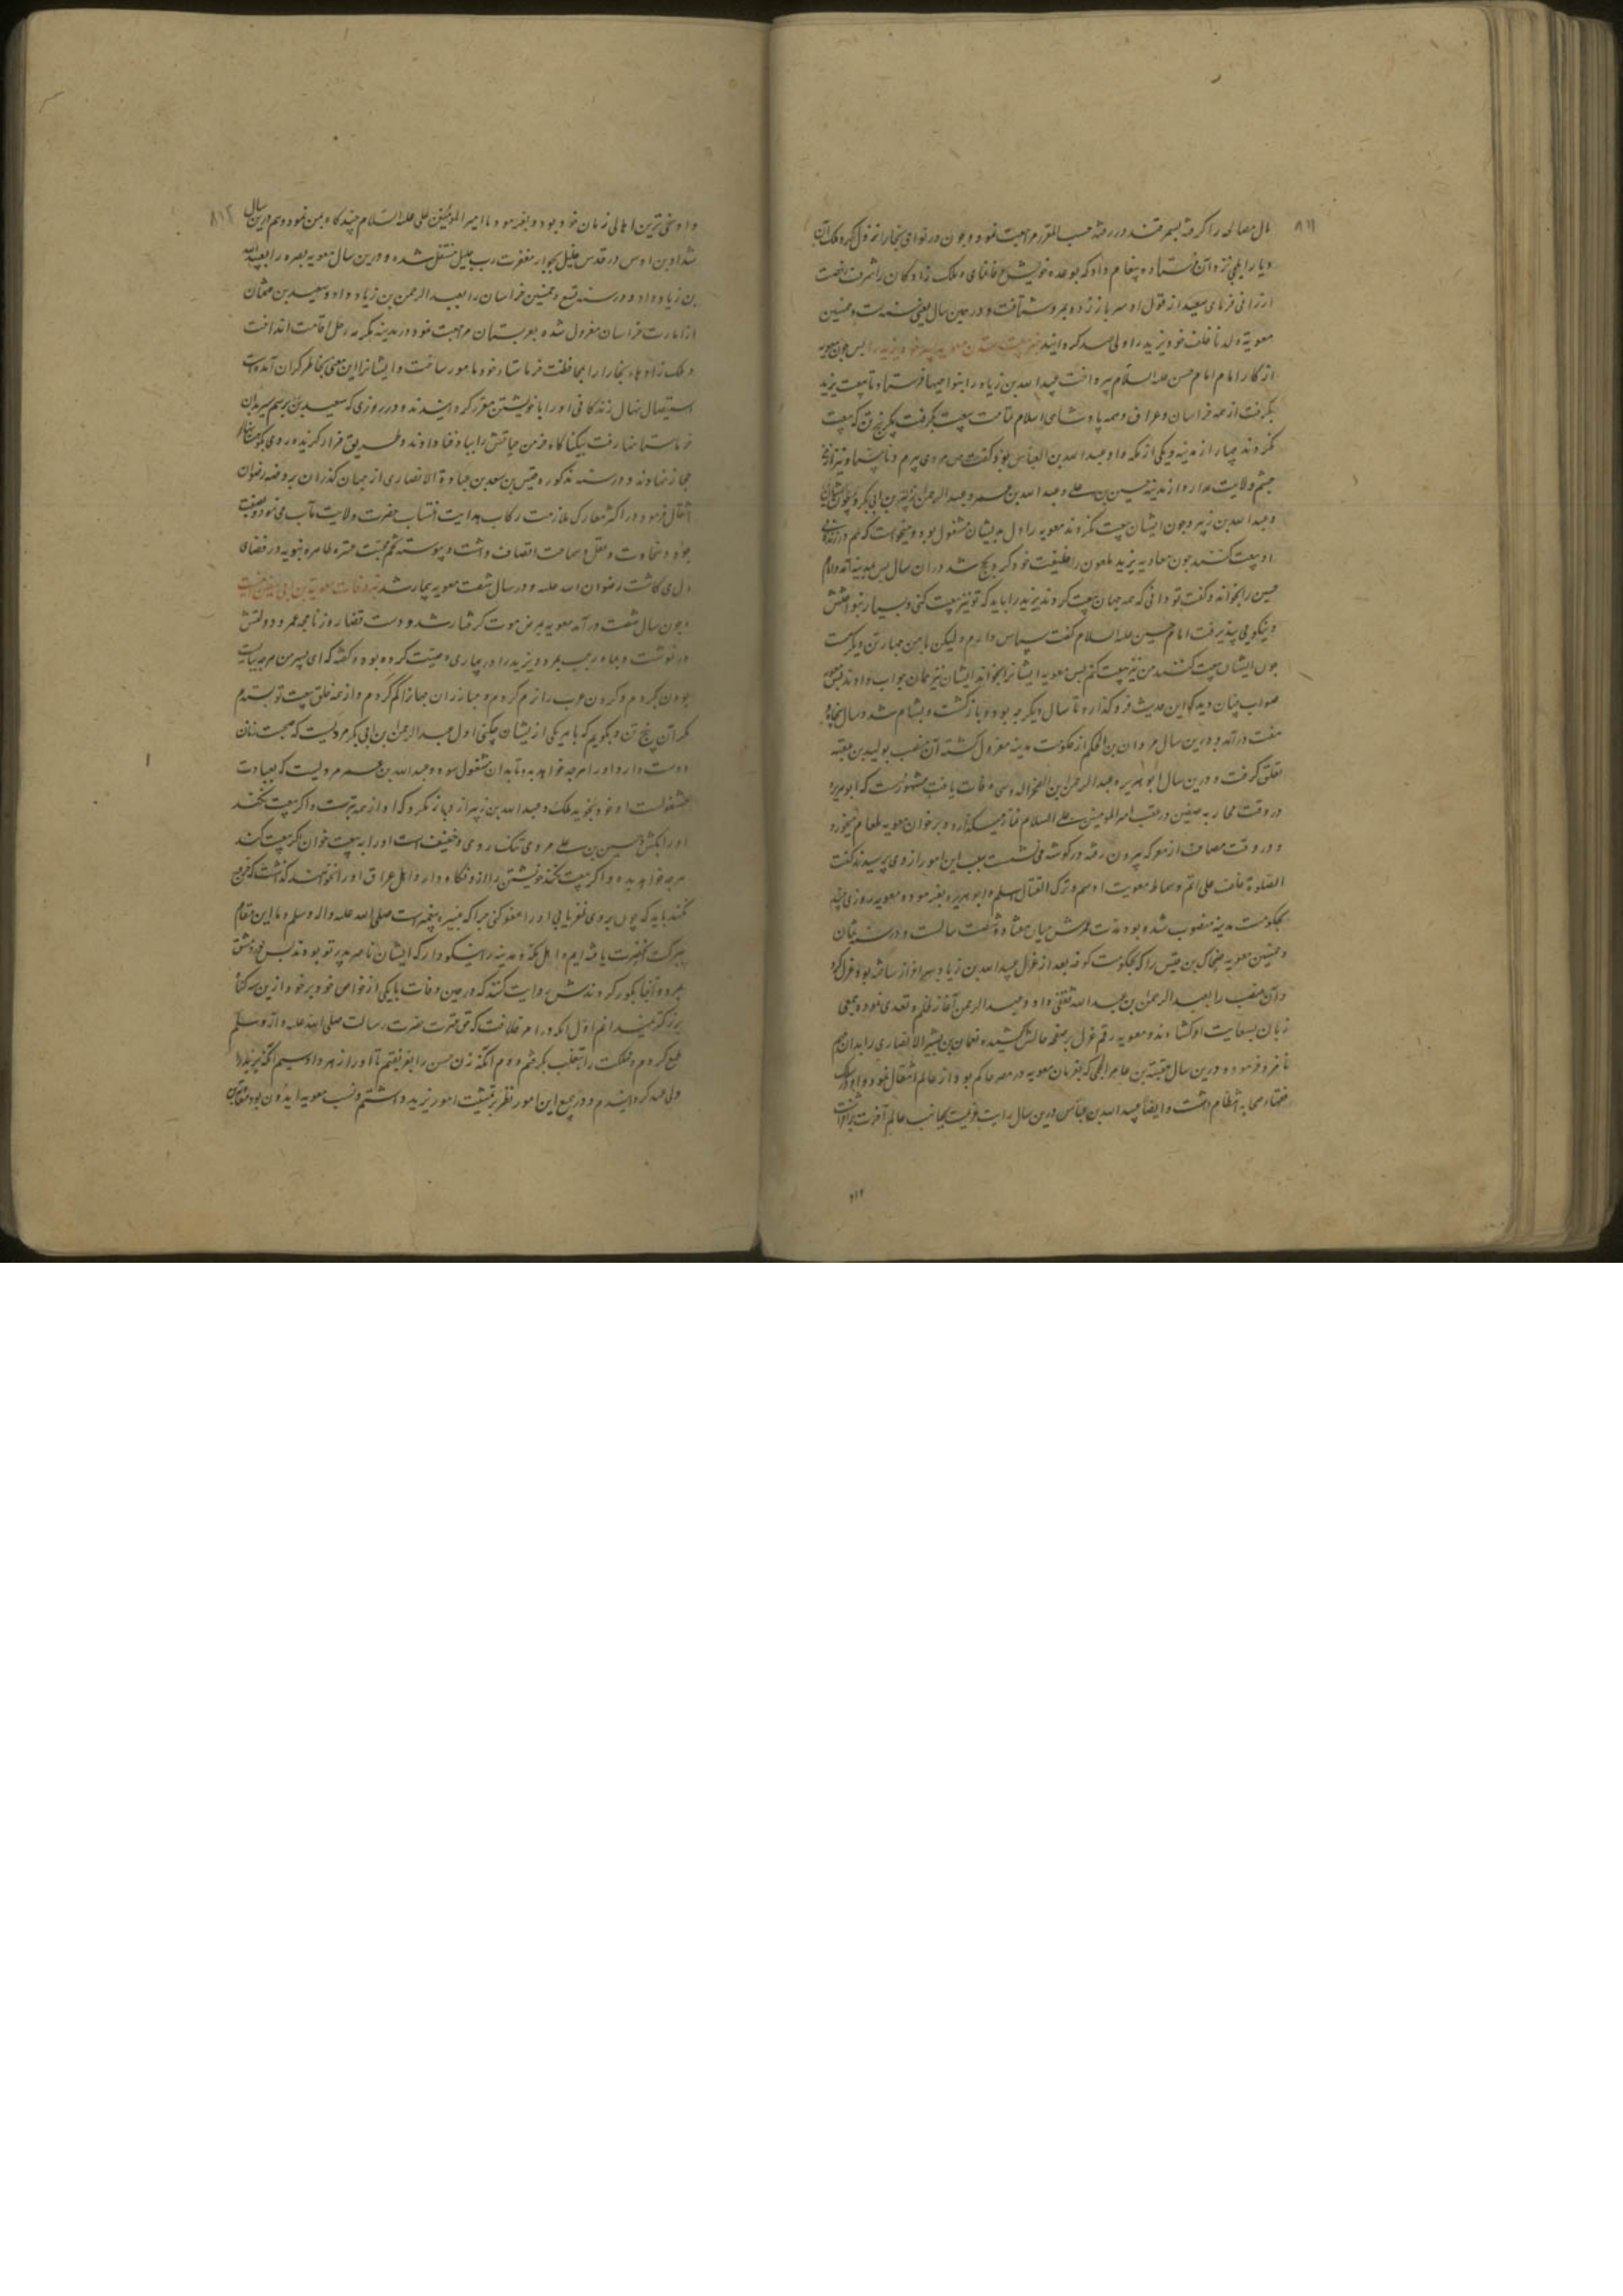 ۸۱۱
مال مصالحه را گرفته بسمرقند در رفته حسب المقرر مراجعت نمود و چون در نواحی بخارا نزول کرد ملک آن
دیار ایلچی نزد آن فرستاده پیغام داد که بوعده خویش وفا نمای و ملک زادگان را شرف رخصت
ارزانی فرمای سعید از قول او سر باز زد و بمرو شتافت و در همین سال یعنی سنه ست و خمسین
معویه ولد ناخلف خود یزید را ولی عهد گردانید ذکر بیعت ستدن معویه پسر خود یزید را پس چون معویه
از کار امام امام حسن علیه السلام پرداخت عبید الله بن زیاد را بنواحیها فرستاد تا بیعت یزید
بگرفت از همه خراسان و عراق و همه پادشاهی اسلام تمامت بیعت بگرفت مگر پنج تن که بیعت
نکردند چهار از مدینه و یکی از مکه و او عبد الله بن العباس بود گفت من مردی پیرم و نابینا و نیز از من
چشم ولایت مدار و از مدینه حسین بن علی و عبد الله بن عمر و عبد الرحمن بن ابی بکر
و عبد الله بن زبیر و چون ایشان بیعت نکردند معویه را دل بدیشان مشغول بود و میخواست که هم در زندگانی
او بیعت کنند چون معاویه یزید ملعون را خلیفت خود کرد بحج شد در آن سال پس بمدینه آمد و امام
حسین را بخواند و گفت تو دانی که همه جهان بیعت کردند یزید را باید که تو نیز بیعت کنی و بسیار بنواختش
و نیکویی پذیرفت امام حسین علیه السلام گفت سپاس دارم ولیکن با من چهار تن دیگرست
چون ایشان بیعت کنند من نیز بیعت کنم پس معویه ایشانرا بخواند ایشان نیز همان جواب دادند پس معویه
صواب چنان دید که این حدیث فرو گذارد تا سال دیگر چه بود و بازگشت و بشام شد و سال پنجاه و
هفت درآمد و درین سال مروان بن الحکم از حکومت مدینه معزول گشته آن منصب بولید بن عتبه
تعلق گرفت و درین سال ابو هریره عبد الرحمن بن الصخر الدوسی وفات یافت مشهورست که ابو هریره
در وقت محاربه صفین در عقب امیر المومنین علی علیه السلام نماز میگذارد و بر خوان معویه طعام میخورد
و در وقت مصاف از معرکه بیرون رفته در گوشه می نشست سبب این امور از وی پرسیدند گفت
الصلوة خلف علی اتم و سماط معویت ادسم و ترک القتال اسلم و ابو هریره بفرموده معویه روزی چند
بحکومت مدینه منصوب شده بود مدت عمرش میان هفتاد و شصت سالست و در سنه ثمان
و خمسین معویه ضحاک بن قیس را که بحکومت کوفه بعد از عزل عبید الله بن زیاد سرافراز ساخته بود عزل کرد
و آن منصب را بعبد الرحمن بن عبد الله ثقفی داد و عبد الرحمن آغاز ظلم و تعدی نمود و جمعی
زبان بسعایت او گشادند و معویه رقم عزل بر صفحه حالش کشیده نعمان بن بشیر الانصاری را بدان مهم
نامزد فرمود و درین سال عقبة بن عامر الجهنی که بفرمان معویه در مصر حاکم بود از عالم انتقال نمود و او در سلک
فقهاء صحابه انتظام داشت و ایضا عبید الله بن عباس درین سال رایت عزیمت بجانب عالم آخرت برافراشت
۸۱۲
۸۱۲
و او سخی ترین اهالی زمان خود بود و بفرموده امیر المومنین علی علیه السلام چند گاه بمن نمود و هم درین سال
شداد بن اوس در قدس خلیل بجوار مغفرت رب جلیل منتقل شد و درین سال معویه بصره را بعبید الله
بن زیاد داد و در سنه تسع و خمسین خراسان را بعبد الرحمن بن زیاد داد و سعید بن عثمان
از امارت خراسان معزول شده بعربستان مراجعت نمود و در مدینه مکرمه رحل اقامت انداخت
و ملک زادهاء بخارا را بمحافظت خرماستان خود مامور ساخت و ایشانرا این معنی بخاطر گران آمده است
استیصال نهال زندگانی او را با خویشتن مقرر گردانیدند و در روزی که سعید بن عثمان برسم سیر بدان
خرماستان رفت بیکناگاه خرمن حیاتش را بباد فنا دادند و طریق فرار گزیده روی
بحجاز نهادند و در سنه مذکوره قیس بن سعد بن عبادة الانصاری از جهان گذران بروضه رضوان
انتقال فرمود در اکثر معارک ملازمت رکاب هدایت انتساب حضرت ولایت مآب می نمود و بصفت
جود و سخاوت و عقل و سماحت اتصاف داشت و پیوسته تخم محبت عترت طاهره نبویه در فضای
دل می کاشت رضوان الله علیه و در سال شصت معویه بیمار شد ذکر وفات معویة بن ابی سفین
و چون سال شصت درآمد معویه بمرض موت گرفتار شد و دست قضا روزنامچه عمر و دولتش
در نوشت و بماه رجب بمرد و یزید را در بیماری وصیت کرده بود و گفته که ای پسر من هر چه ببایست
بودن بکردم و گردن عرب را نرم کردم و مبارزان جهانرا کم کردم و از همه خلق بیعت تو بستدم
مگر آن پنج تن و بگویم که با هر یکی از ایشان چکنی اول عبد الرحمن بن ابی بکر مردیست که صحبت زنان
دوست دارد او را هر چه خواهد بده تا بدان مشغول شود و عبد الله بن عمر مردیست که بعبادت
مشغولست او خود نجوید ملک و عبد الله بن زبیر از میان بگردد که او از همه بترست و اگر بیعت نکند
او را بکش و حسین بن علی مردی تنک روی و خفیف است او را ببیعت خوان اگر بیعت کند
هر چه خواهد بده و اگر بیعت نکند خویشتن را ازو نگاه دار و اهل عراق او را نخواهند گذاشت که خروج
نکند باید که چون بر وی ظفر یابی او را عفو کنی چرا که نبیره پیغمبرست صلی الله علیه واله وسلم و ما این مقام
ببرکت آنحضرت یافته ایم و اهل مکه و مدینه را نیکو دار که ایشان ناصر پدر تو بودند پس بدمشق
بمرد و آنجا بگور کردندش روایت کنند که در حین وفات با یکی از خواص خود بر خود ازین سه گناه
بزرگتر نمیدانم اول آنکه در امر خلافت که حق عترت حضرت رسالت صلی الله علیه و آله وسلم
طمع کردم و مملکت را بتغلب بگرفتم دوم آنکه زن حسن را بفریفتم تا او را زهر داد سیم آنکه یزید را
ولی عهد گردانیدم و در جمیع این امور نظر بر تمشیت امور یزید داشتم و نسب معویه ایدون بود